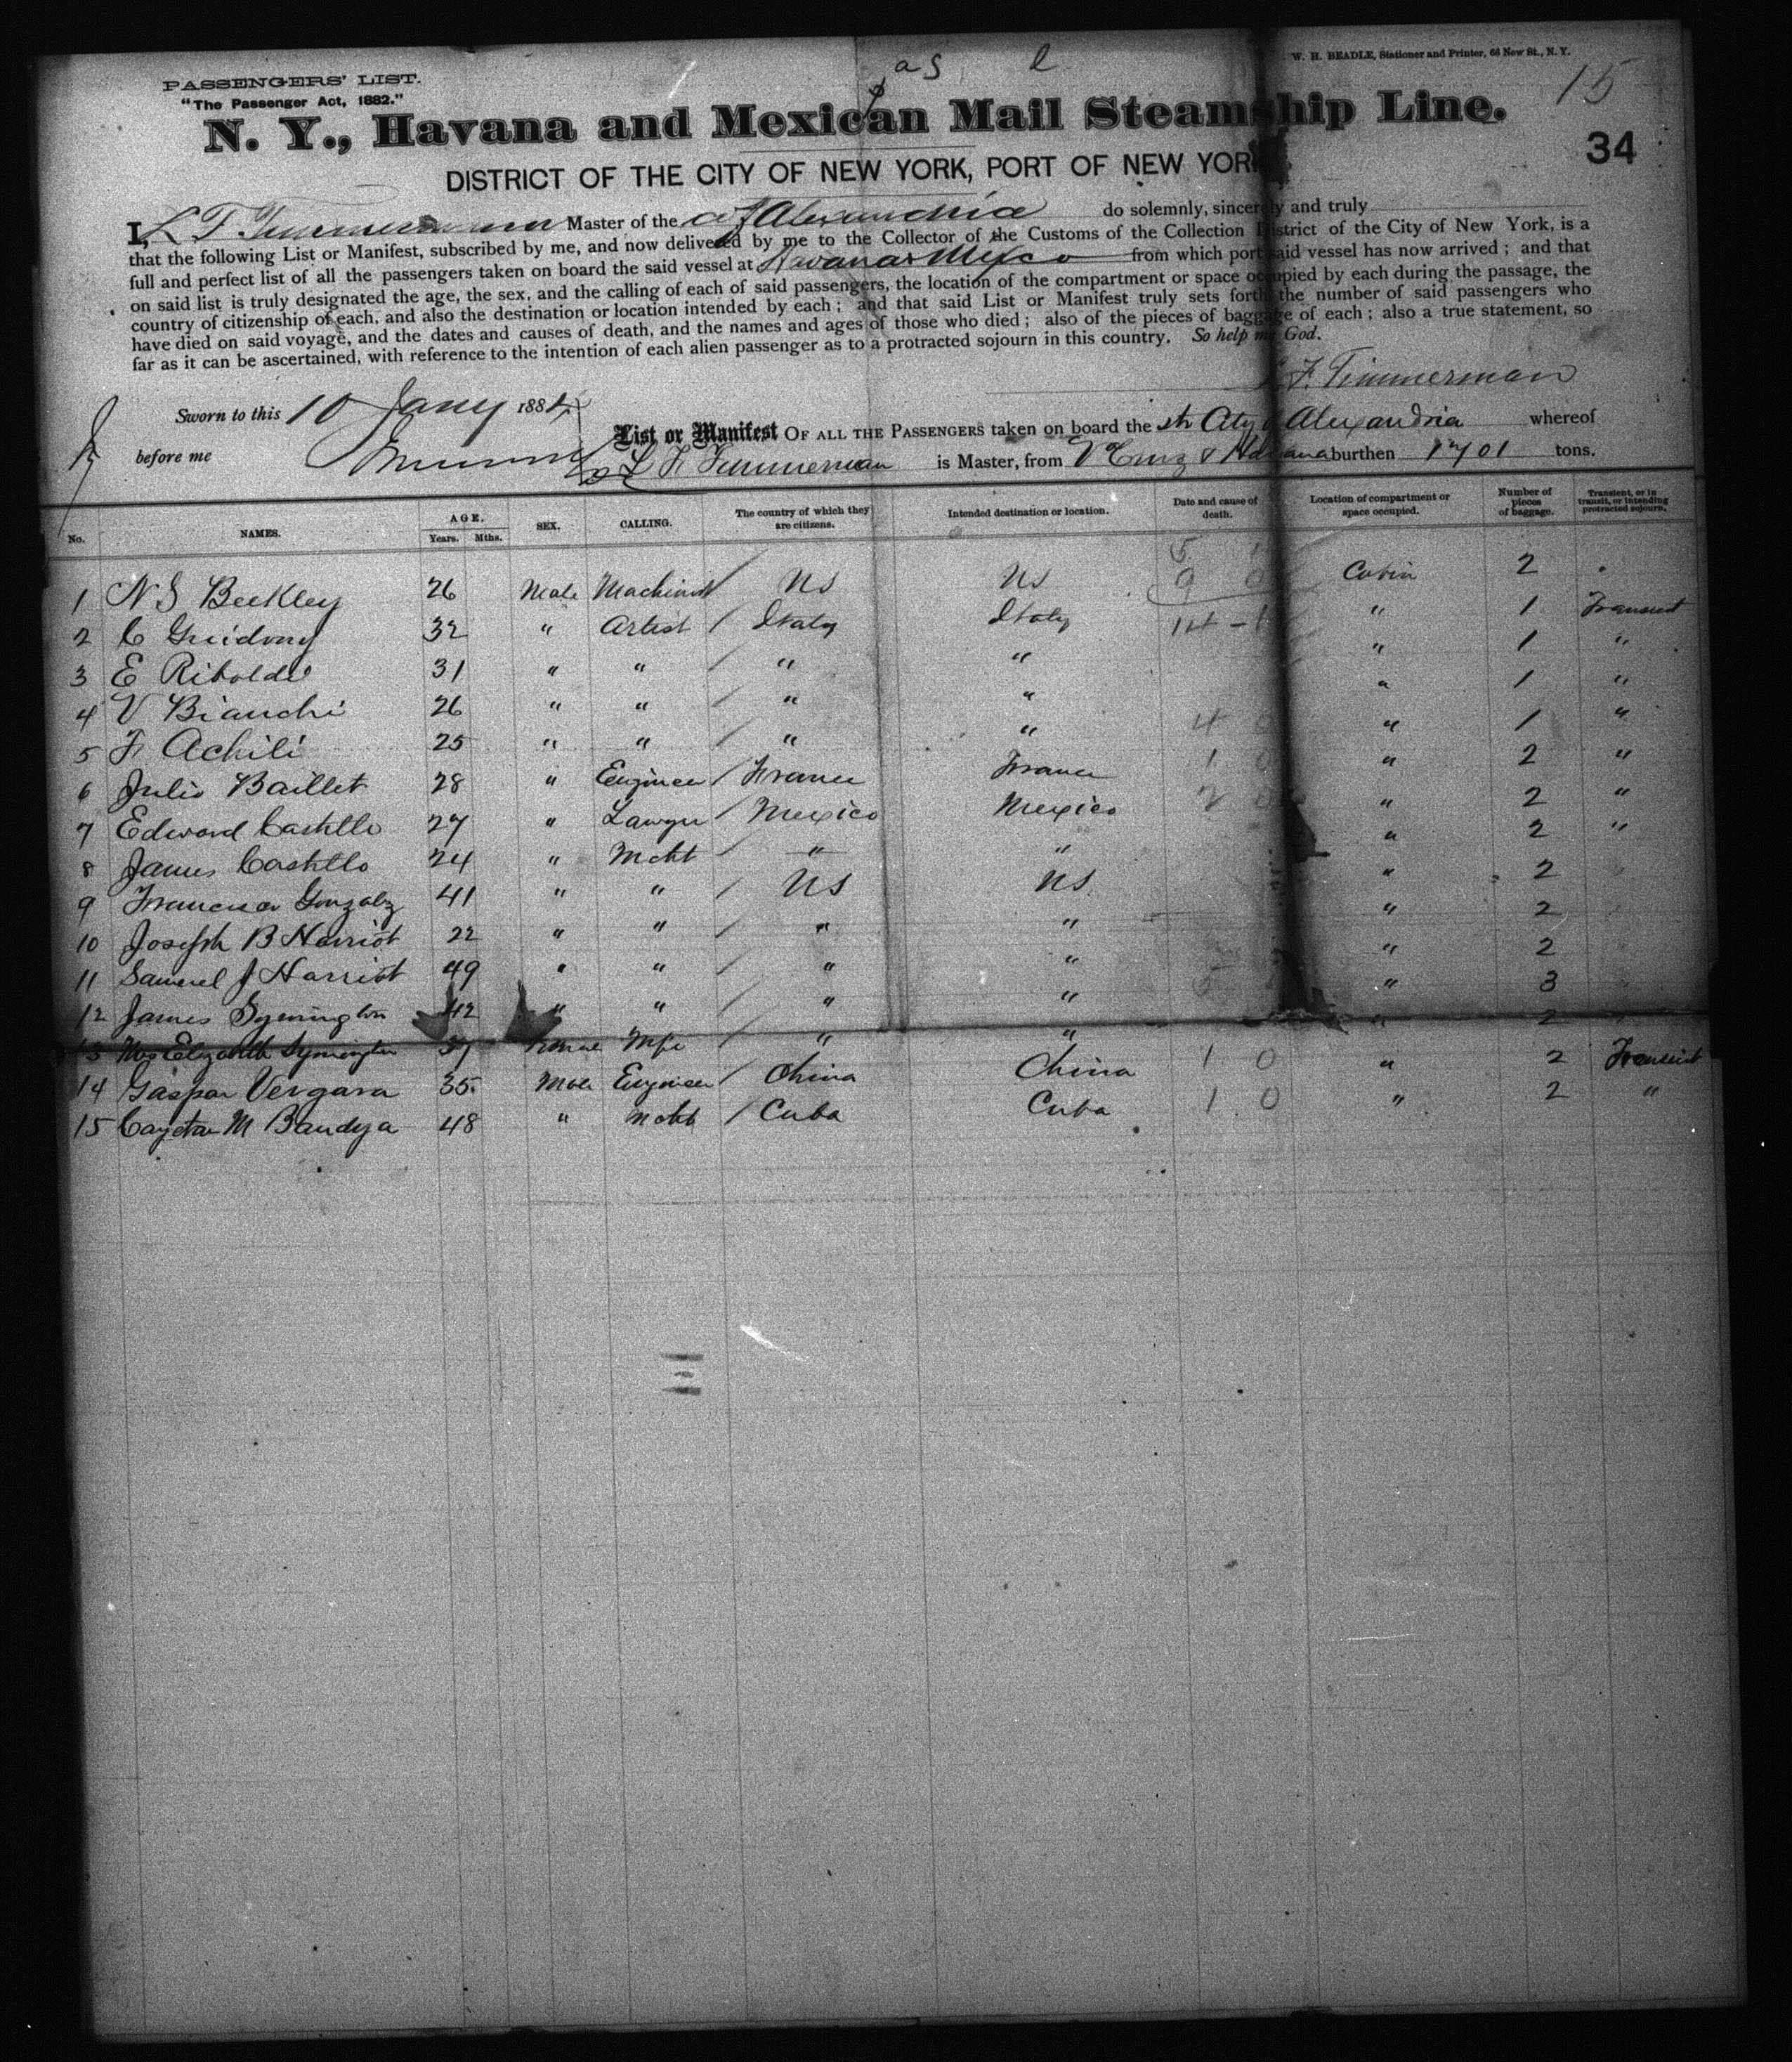 as l
W. H. BEADLE, Stationer and Printer, 66 New St., N. Y.
PASSENGERS' LIST.
"The Passenger Act, 1882."
15
N. Y., Havana and Mexican Mail Steamship Line.
34
DISTRICT OF THE CITY OF NEW YORK, PORT OF NEW YORK
I, L F Timmerman Master of the C of Alexandria do solemnly, sincerely and truly
that the following List or Manifest, subscribed by me, and now delivered by me to the Collector of the Customs of the Collection District of the City of New York, is a
full and perfect list of all the passengers taken on board the said vessel at Havana & Mexco from which port said vessel has now arrived; and that
on said list is truly designated the age, the sex, and the calling of each of said passengers, the location of the compartment or space occupied by each during the passage, the
country of citizenship of each, and also the destination or location intended by each; and that said List or Manifest truly sets forth the number of said passengers who
have died on said voyage, and the dates and causes of death, and the names and ages of those who died; also of the pieces of baggage of each; also a true statement, so
far as it can be ascertained, with reference to the intention of each alien passenger as to a protracted sojourn in this country. So help me God.
L F. Timmerman
Sworn to this 10 Jany 1884
List or Manifest OF ALL THE PASSENGERS taken on board the str City of Alexandria whereof
before me L F Timmerman is Master, from V Cruz & Havana burthen 1701 tons.
No. NAMES. AGE. Years. Mths. SEX. CALLING. The country of which they are citizens. Intended destination or location. Date and cause of death. Location of compartment or space occupied. Number of pieces of baggage. Transient, or in transit, or intending protracted sojourn.
1 N S Beekley 26 Male Machinist US US Cabin 2
2 C Guidony 32 " Artist Italy Italy " 1 Transient
3 E Riboldi 31 " " " " " 1 "
4 V Bianchi 26 " " " " " 1 "
5 F Achili 25 " " " " " 1 "
6 Julio Baillet 28 " Engineer France France " 2 "
7 Edward Castillo 27 " Lawyer Mexico Mexico " 2 "
8 James Castillo 24 " Mcht " " " 2 "
9 Francisco Gonzalez 41 " " US US " 2
10 Joseph B Harriot 22 " " " " " 2
11 Samuel J Harriot 49 " " " " " 2
12 James Symington 42 " " " " " 3
13 Mrs Elizabeth Symington 37 Female " " " 2
14 Gaspar Vergara 35 Male Engineer China China 1 0 " 2 Transient
15 Cayetan M Bandya 48 " Mcht Cuba Cuba 1 0 " 2 "